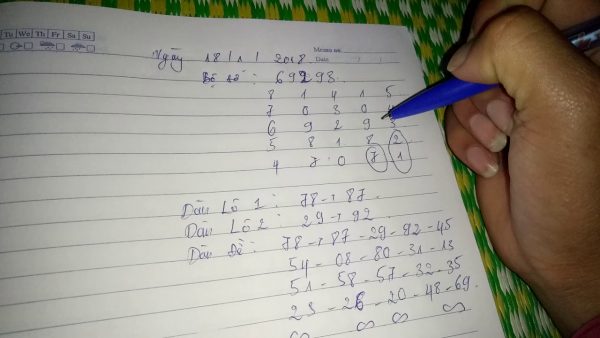 Tu We Th Fr Sa Su
Memo no.
Date / /
Ngày 18/1/2018.
Bộ số: 69293.
8 1 4 1 5
7 0 3 0 4
6 9 2 9 3
5 8 1 8 2
4 7 0 7 1
Dàn Lô 1: 78 → 87.
Dàn Lô 2: 29 → 92
Dàn Đề: 78 → 87 - 29 - 92 - 45
54 - 08 - 80 - 31 - 13
51 - 58 - 57 - 32 - 35
23 - 26 - 20 - 48 - 69.